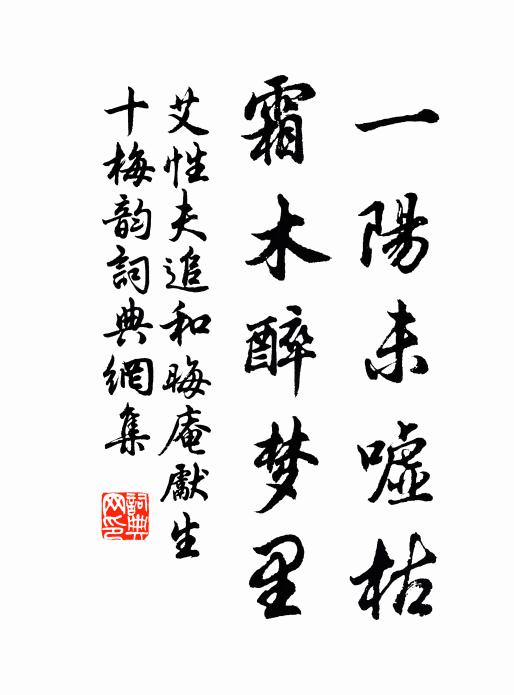 一陽未噓枯
霜木醉梦里
艾性夫追和晦庵獻生
十梅韵詞典網集
詞典
网印